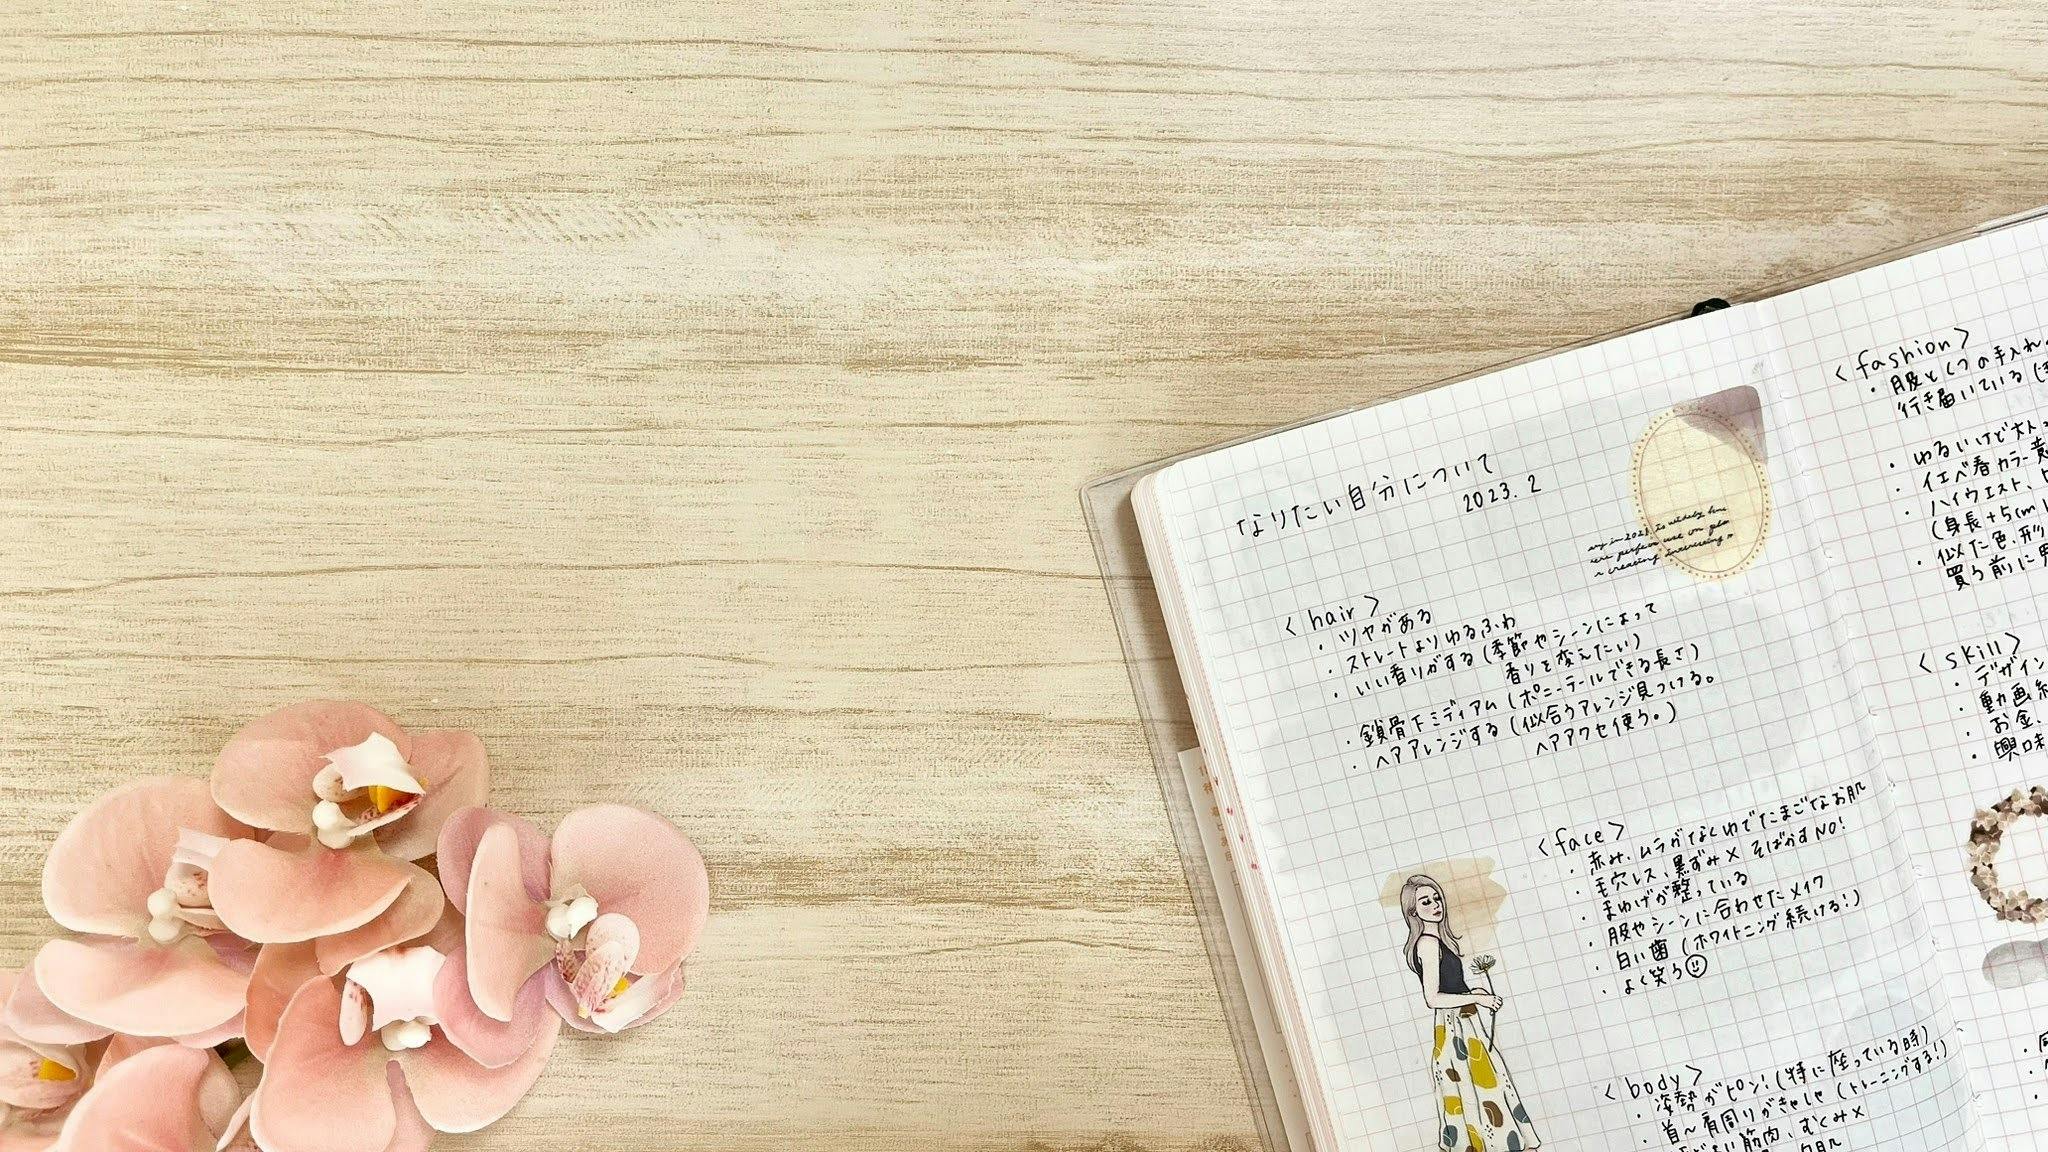 なりたい自分について
2023. 2
<hair>
・ツヤがある
・ストレートよりゆるふわ
・いい香りがする(季節やシーンによって
香りを変えたい)
・鎖骨下ミディアム(ポニーテールできる長さ)
・ヘアアレンジする(似合うアレンジ見つける。
ヘアアクセ使う。)
<face>
・赤み、ムラがなくゆでたまごなお肌
・毛穴レス、黒ずみ× そばかすNO!
・まゆげが整っている
・服やシーンに合わせたメイク
・白い歯(ホワイトニング続ける!)
・よく笑う☺
<body>
・姿勢がピン!(特に座っている時)
・首〜肩周りがきゃしゃ(トレーニングする!)
筋肉、むくみ×
<fashion>
・服とくつの手入れ
行き届いている
・ゆるいけど大人
・イエベ春カラー意
・ハイウエスト、
(身長+5cm
・似た色、形
買う前に
<skill>
・デザイン
・動画
お金、
・興味